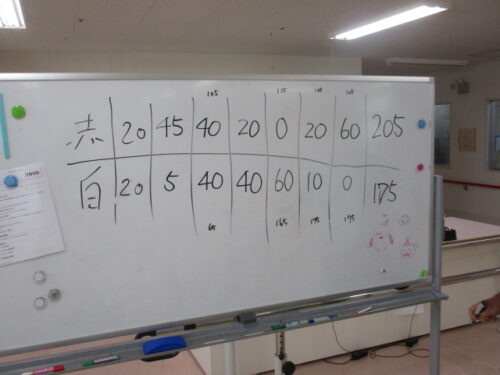 105 125 145 205
赤 20 45 40 20 0 20 60 205
白 20 5 40 40 60 10 0 175
65 165 175 175